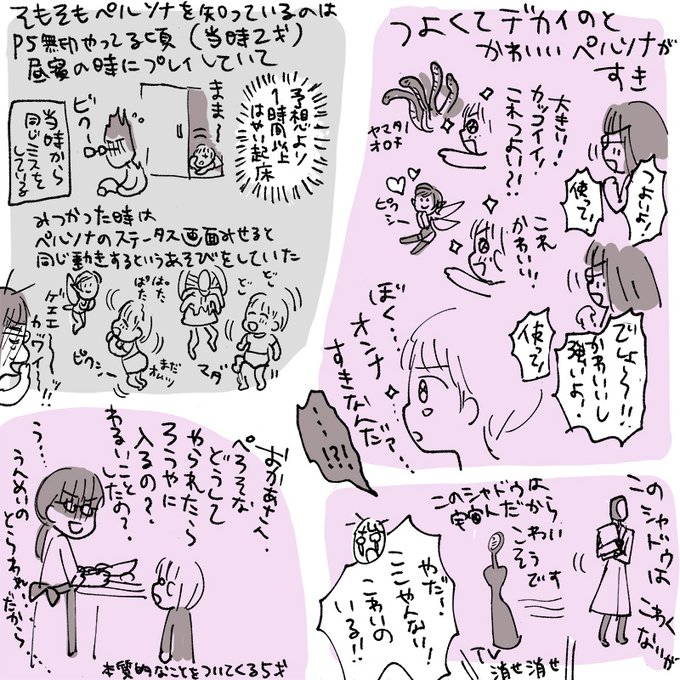 つよくてデカイのと
かわいいペルソナが
すき
大きい!
カッコイイ!
これつよい?!
ヤマタノ
オロチ
つよいよ!
使って!
これ
かわいい!!
ピクシー
でしょ〜!!
かわいいし
強いよ!
使って!
ぼく…
オンナ
すきなんだ?…
…!?!
そもそもペルソナを知っているのは
P5無印やってる頃(当時2才)
昼寝の時にプレイしていて
予想より
1時間以上
はやい起床
ままー
ビクー
当時から
同じミスを
しているな
みつかった時は
ペルソナのステータス画面みせると
同じ動きするというあそびをしていた
ゲエエ
カワイ
!!
ピクシー
ぱた
ぱた
まだ
オムツ
マダ
ど
ど
このシャドウは
こわく
ないが
このシャドウは
からい
宇宙人だ
こわ
そうです
やだ!
ここやんない!
こわいの
いる!!
TV
消せ消せ
おかあさん、
ぺろそな
どうして
やられたら
ろうやに
入るの?
わるいこと
したの?
う…
うんめいの
とらわれ
だから…
本質的なことをついてくる5才